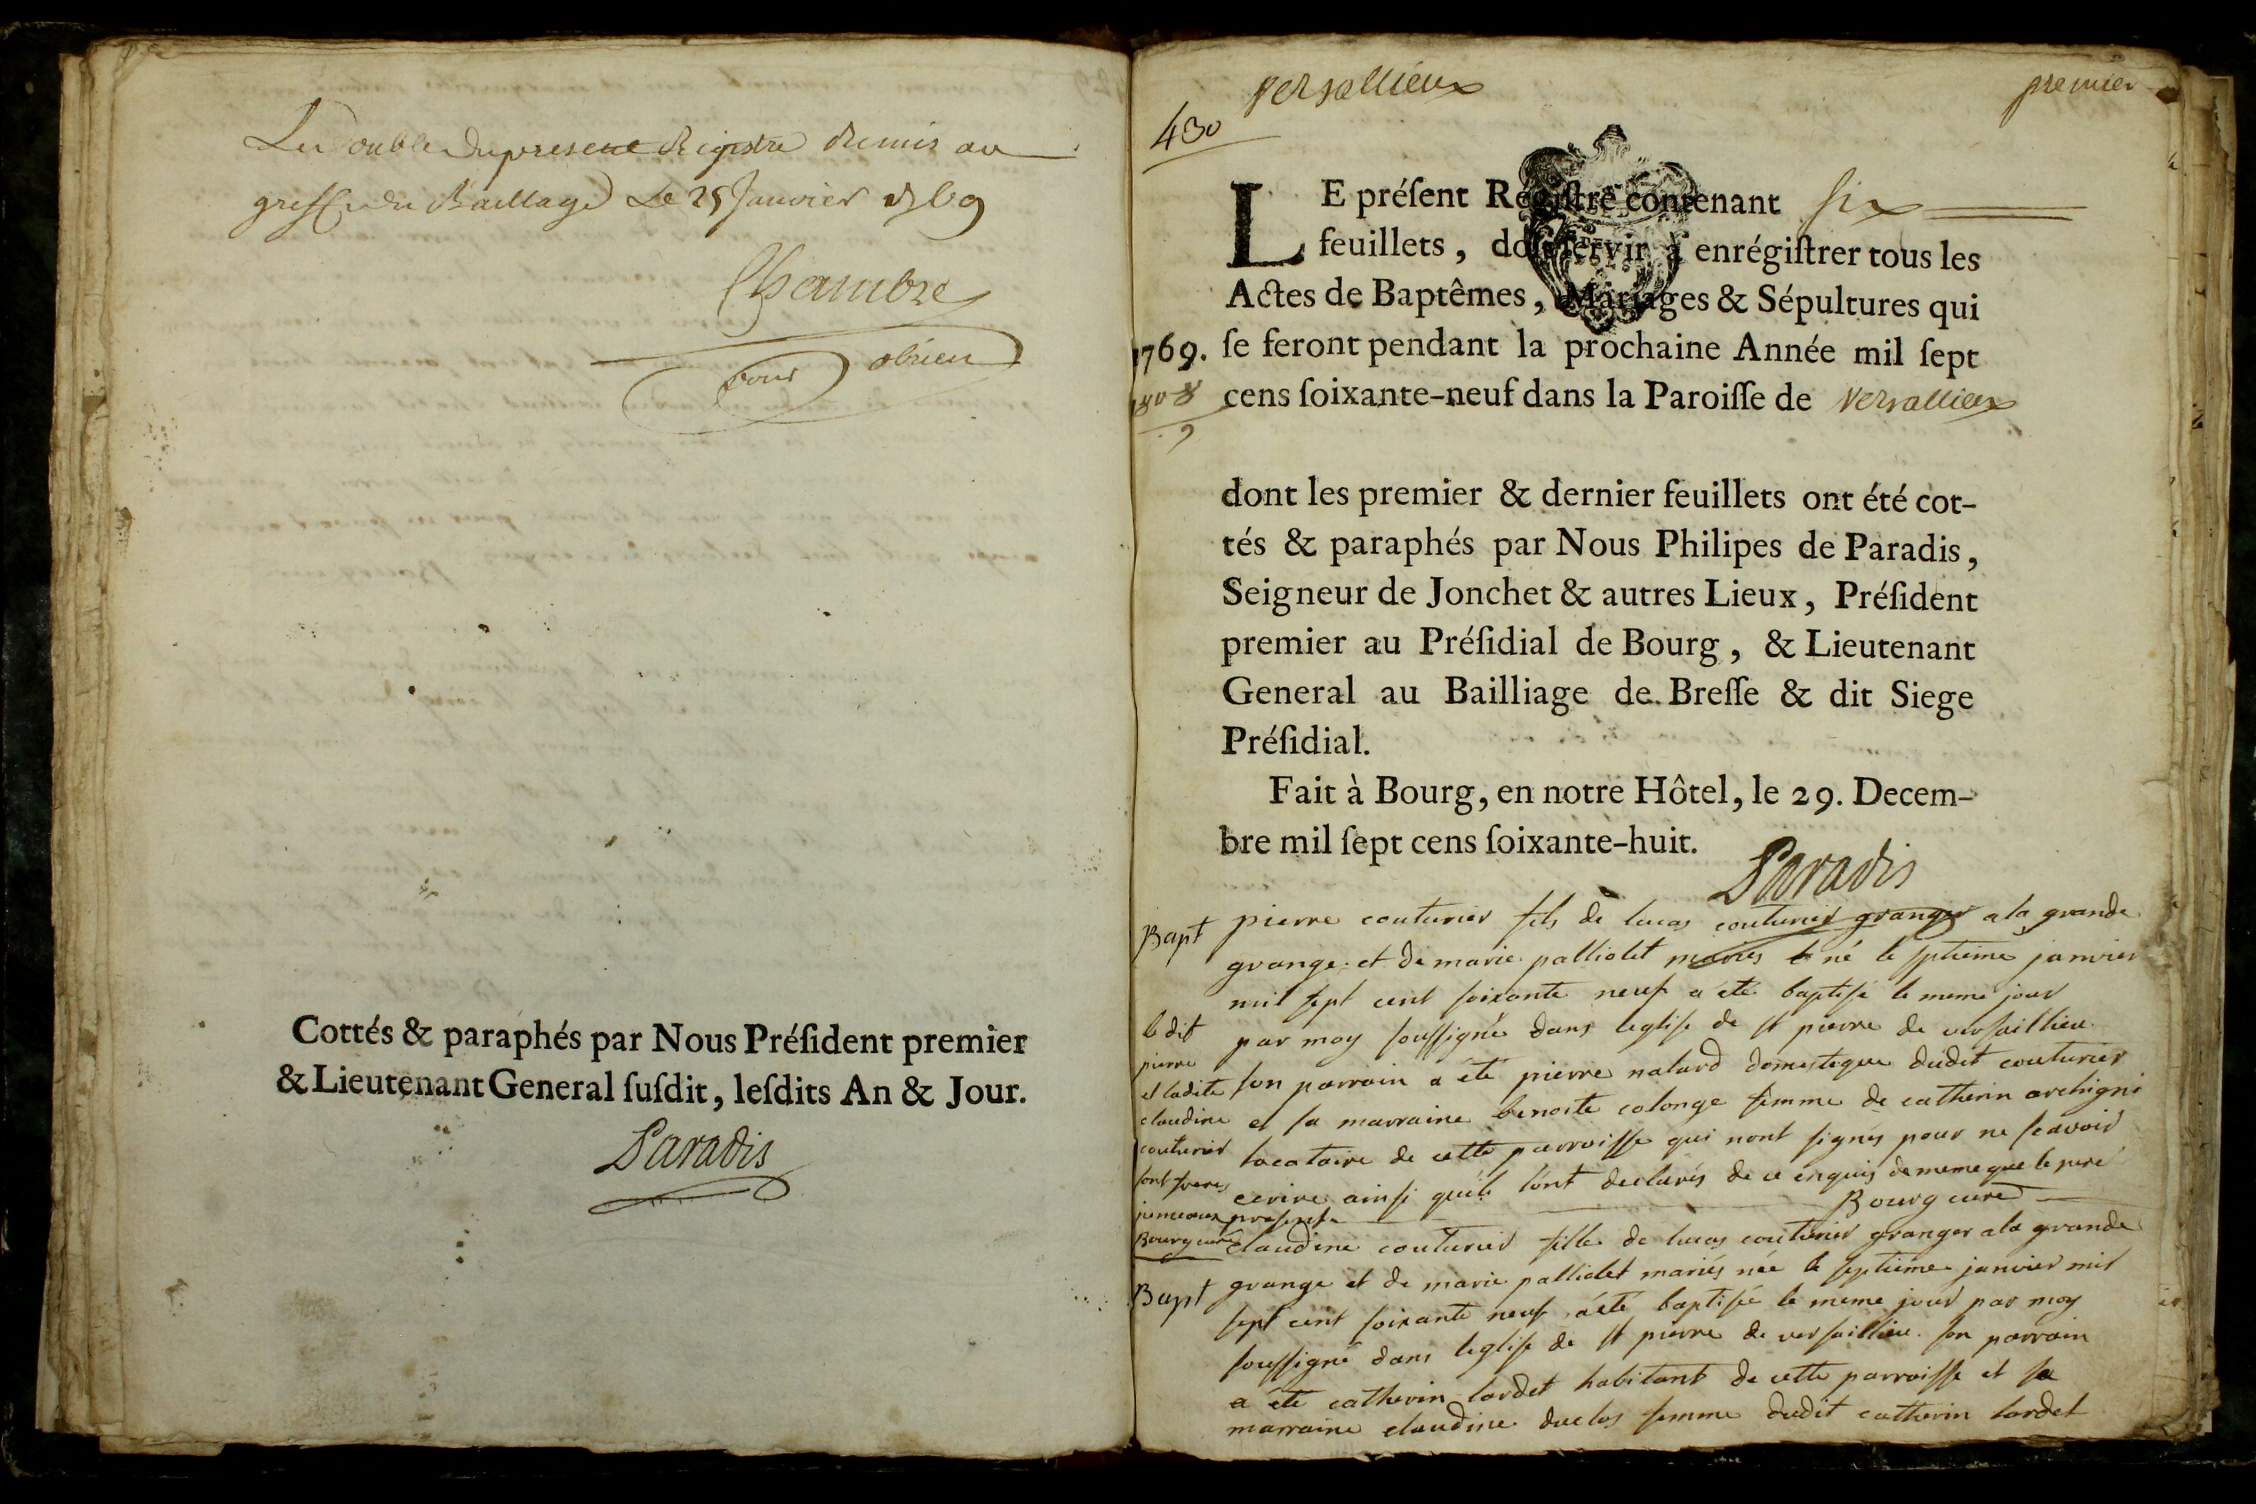 Le Double du present Registre Remis au
greffe du Baillage Le 25 Janvier 1769
Chambre
pour obrien
Cottés & paraphés par Nous Préſident premier
& Lieutenant General ſuſdit, leſdits An & Jour.
Paradis
versallieux
premier
430
LE préſent Régiſtre contenant six
feuillets, doit ſervir à enrégiſtrer tous les
Actes de Baptêmes, Mariages & Sépultures qui
1769. ſe feront pendant la prochaine Année mil ſept
cens ſoixante-neuf dans la Paroiſſe de versallieux
dont les premier & dernier feuillets ont été cot-
tés & paraphés par Nous Philipes de Paradis,
Seigneur de Jonchet & autres Lieux, Préſident
premier au Préſidial de Bourg, & Lieutenant
General au Bailliage de Breſſe & dit Siege
Préſidial.
Fait à Bourg, en notre Hôtel, le 29. Decem-
bre mil ſept cens ſoixante-huit.
Paradis
Bapt
pierre couturier fils de lucas couturier granger a la grande
grange et de marie palliolet mariés né le septieme janvier
mil sept cent soixante neuf a été baptisé le meme jour
par moy soussigné dans leglise de st pierre de versaillieu
son parrain a été pierre nalard domestique dudit couturier
et sa marraine benoite colonge femme de catherin archigni
locataire de cette parroisse qui nont signés pour ne scavoir
ecrire ainsi quils lont declarés de ce enquis de meme que le pere
present Bourg curé
le dit
pierre
et ladite
claudine
couturier
sont freres
jumeaux
Bourg curé
Bapt
claudine couturier fille de lucas couturier granger a la grande
grange et de marie palliolet mariés née le septieme janvier mil
sept cent soixante neuf a été baptisée le meme jour par moy
soussigné dans leglise de st pierre de versaillieu son parrain
a été catherin lardet habitant de cette parroisse et sa
marraine claudine duclos femme dudit catherin lardet